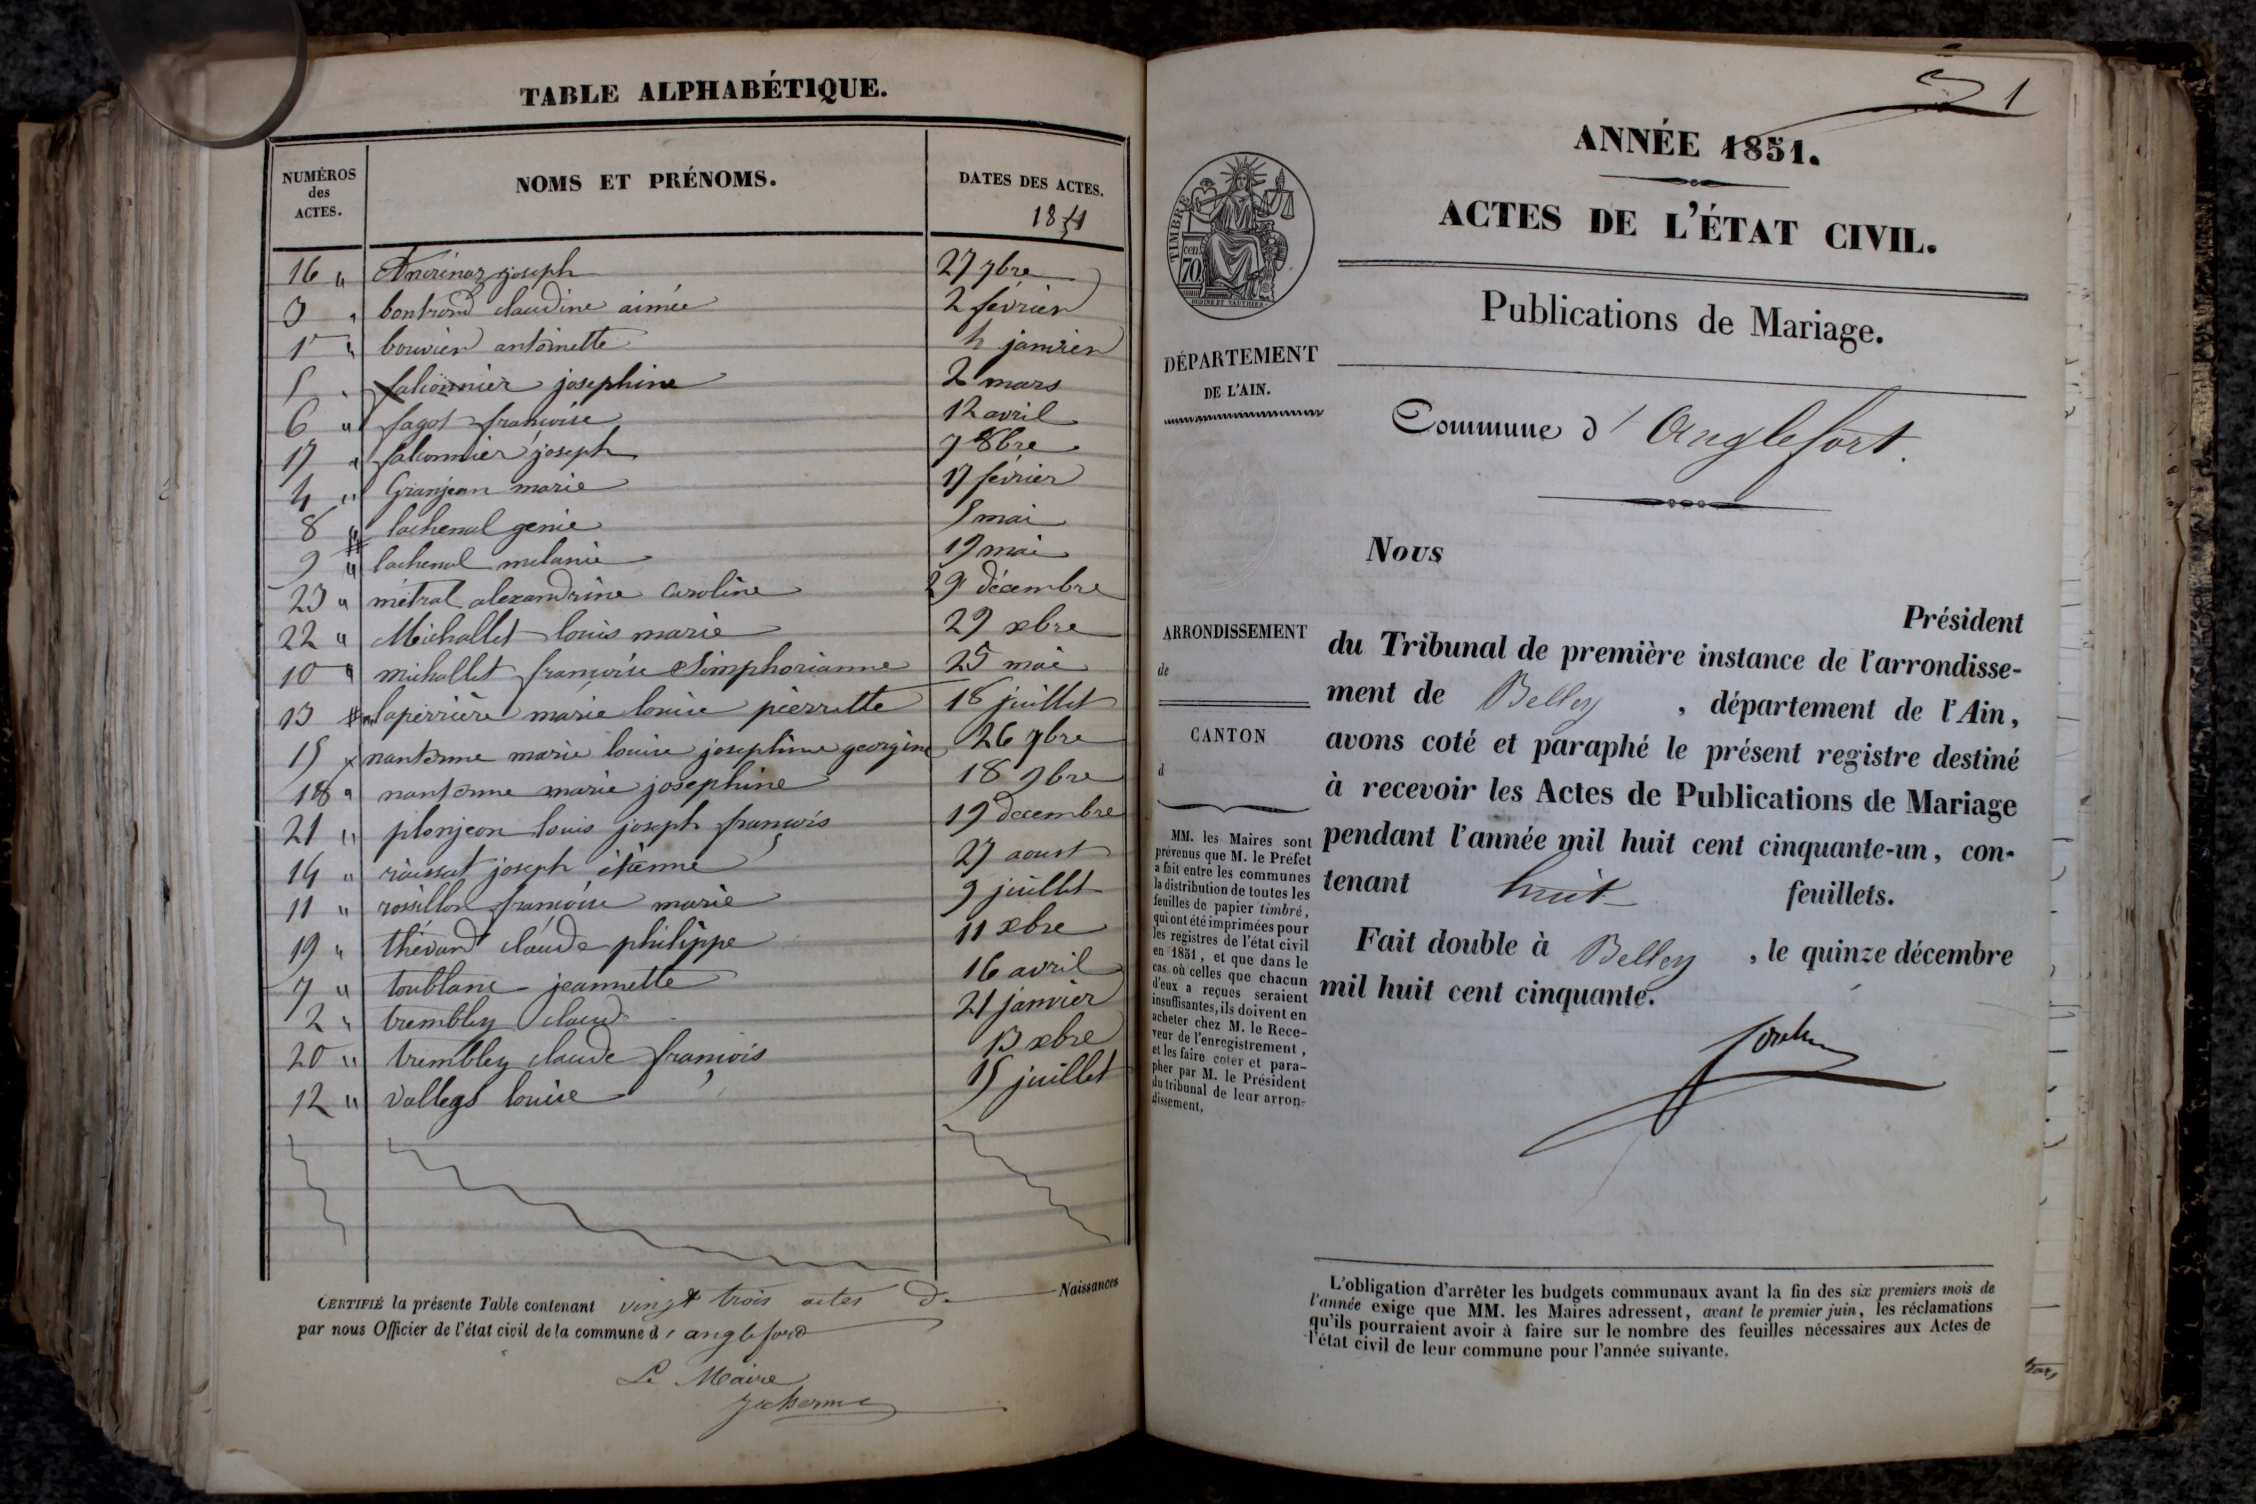 TABLE ALPHABÉTIQUE.
NUMÉROS des ACTES.
NOMS ET PRÉNOMS.
DATES DES ACTES.
1851
16 " joseph 27 7bre
3 " bontrond claudine aimée 2 février
1er " bouvier antoinette 4 janvier
5 " falconnier josephine 2 mars
6 " fagot françoise 12 avril
17 " falconnier joseph 7 8bre
4 " Granjean marie 17 février
8 " lachenal genie 5 mai
9 " lachenal melanie 19 mai
23 " métral alexandrine caroline 29 décembre
22 " Michallet louis marie 29 xbre
10 " michallet françoise Simphorianne 25 mai
13 " laperrière marie louise pierrette 18 juillet
15 nantonne marie louise josephine georgine 26 7bre
18 " nantonne marie josephine 18 9bre
21 " plonjeon louis joseph françois 19 decembre
14 " raissat joseph étienne 27 aoust
11 " rossillon françoise marie 9 juillet
19 " thévand claude philippe 11 xbre
7 " toublanc jeannette 16 avril
2 " trembley claud 21 janvier
20 " trembley claude françois 13 xbre
12 " louise 15 juillet
CERTIFIÉ la présente Table contenant vingt trois actes de Naissances
par nous Officier de l'état civil de la commune d'angleford
Le Maire
1
ANNÉE 1851.
ACTES DE L'ÉTAT CIVIL.
Publications de Mariage.
TIMBRE
cen
70
DÉPARTEMENT
DE L'AIN.
Commune d'Anglefort.
Nous
Président
du Tribunal de première instance de l'arrondisse-
ment de Belley , département de l'Ain,
avons coté et paraphé le présent registre destiné
à recevoir les Actes de Publications de Mariage
pendant l'année mil huit cent cinquante-un, con-
tenant huit feuillets.
Fait double à Belley , le quinze décembre
mil huit cent cinquante.
ARRONDISSEMENT
de
CANTON
d
MM. les Maires sont
prévenus que M. le Préfet
a fait entre les communes
la distribution de toutes les
feuilles de papier timbré,
qui ont été imprimées pour
les registres de l'état civil
en 1851, et que dans le
cas où celles que chacun
d'eux a reçues seraient
insuffisantes, ils doivent en
acheter chez M. le Rece-
veur de l'enregistrement,
et les faire coter et para-
pher par M. le Président
du tribunal de leur arron-
dissement,
L'obligation d'arrêter les budgets communaux avant la fin des six premiers mois de
l'année exige que MM. les Maires adressent, avant le premier juin, les réclamations
qu'ils pourraient avoir à faire sur le nombre des feuilles nécessaires aux Actes de
l'état civil de leur commune pour l'année suivante.